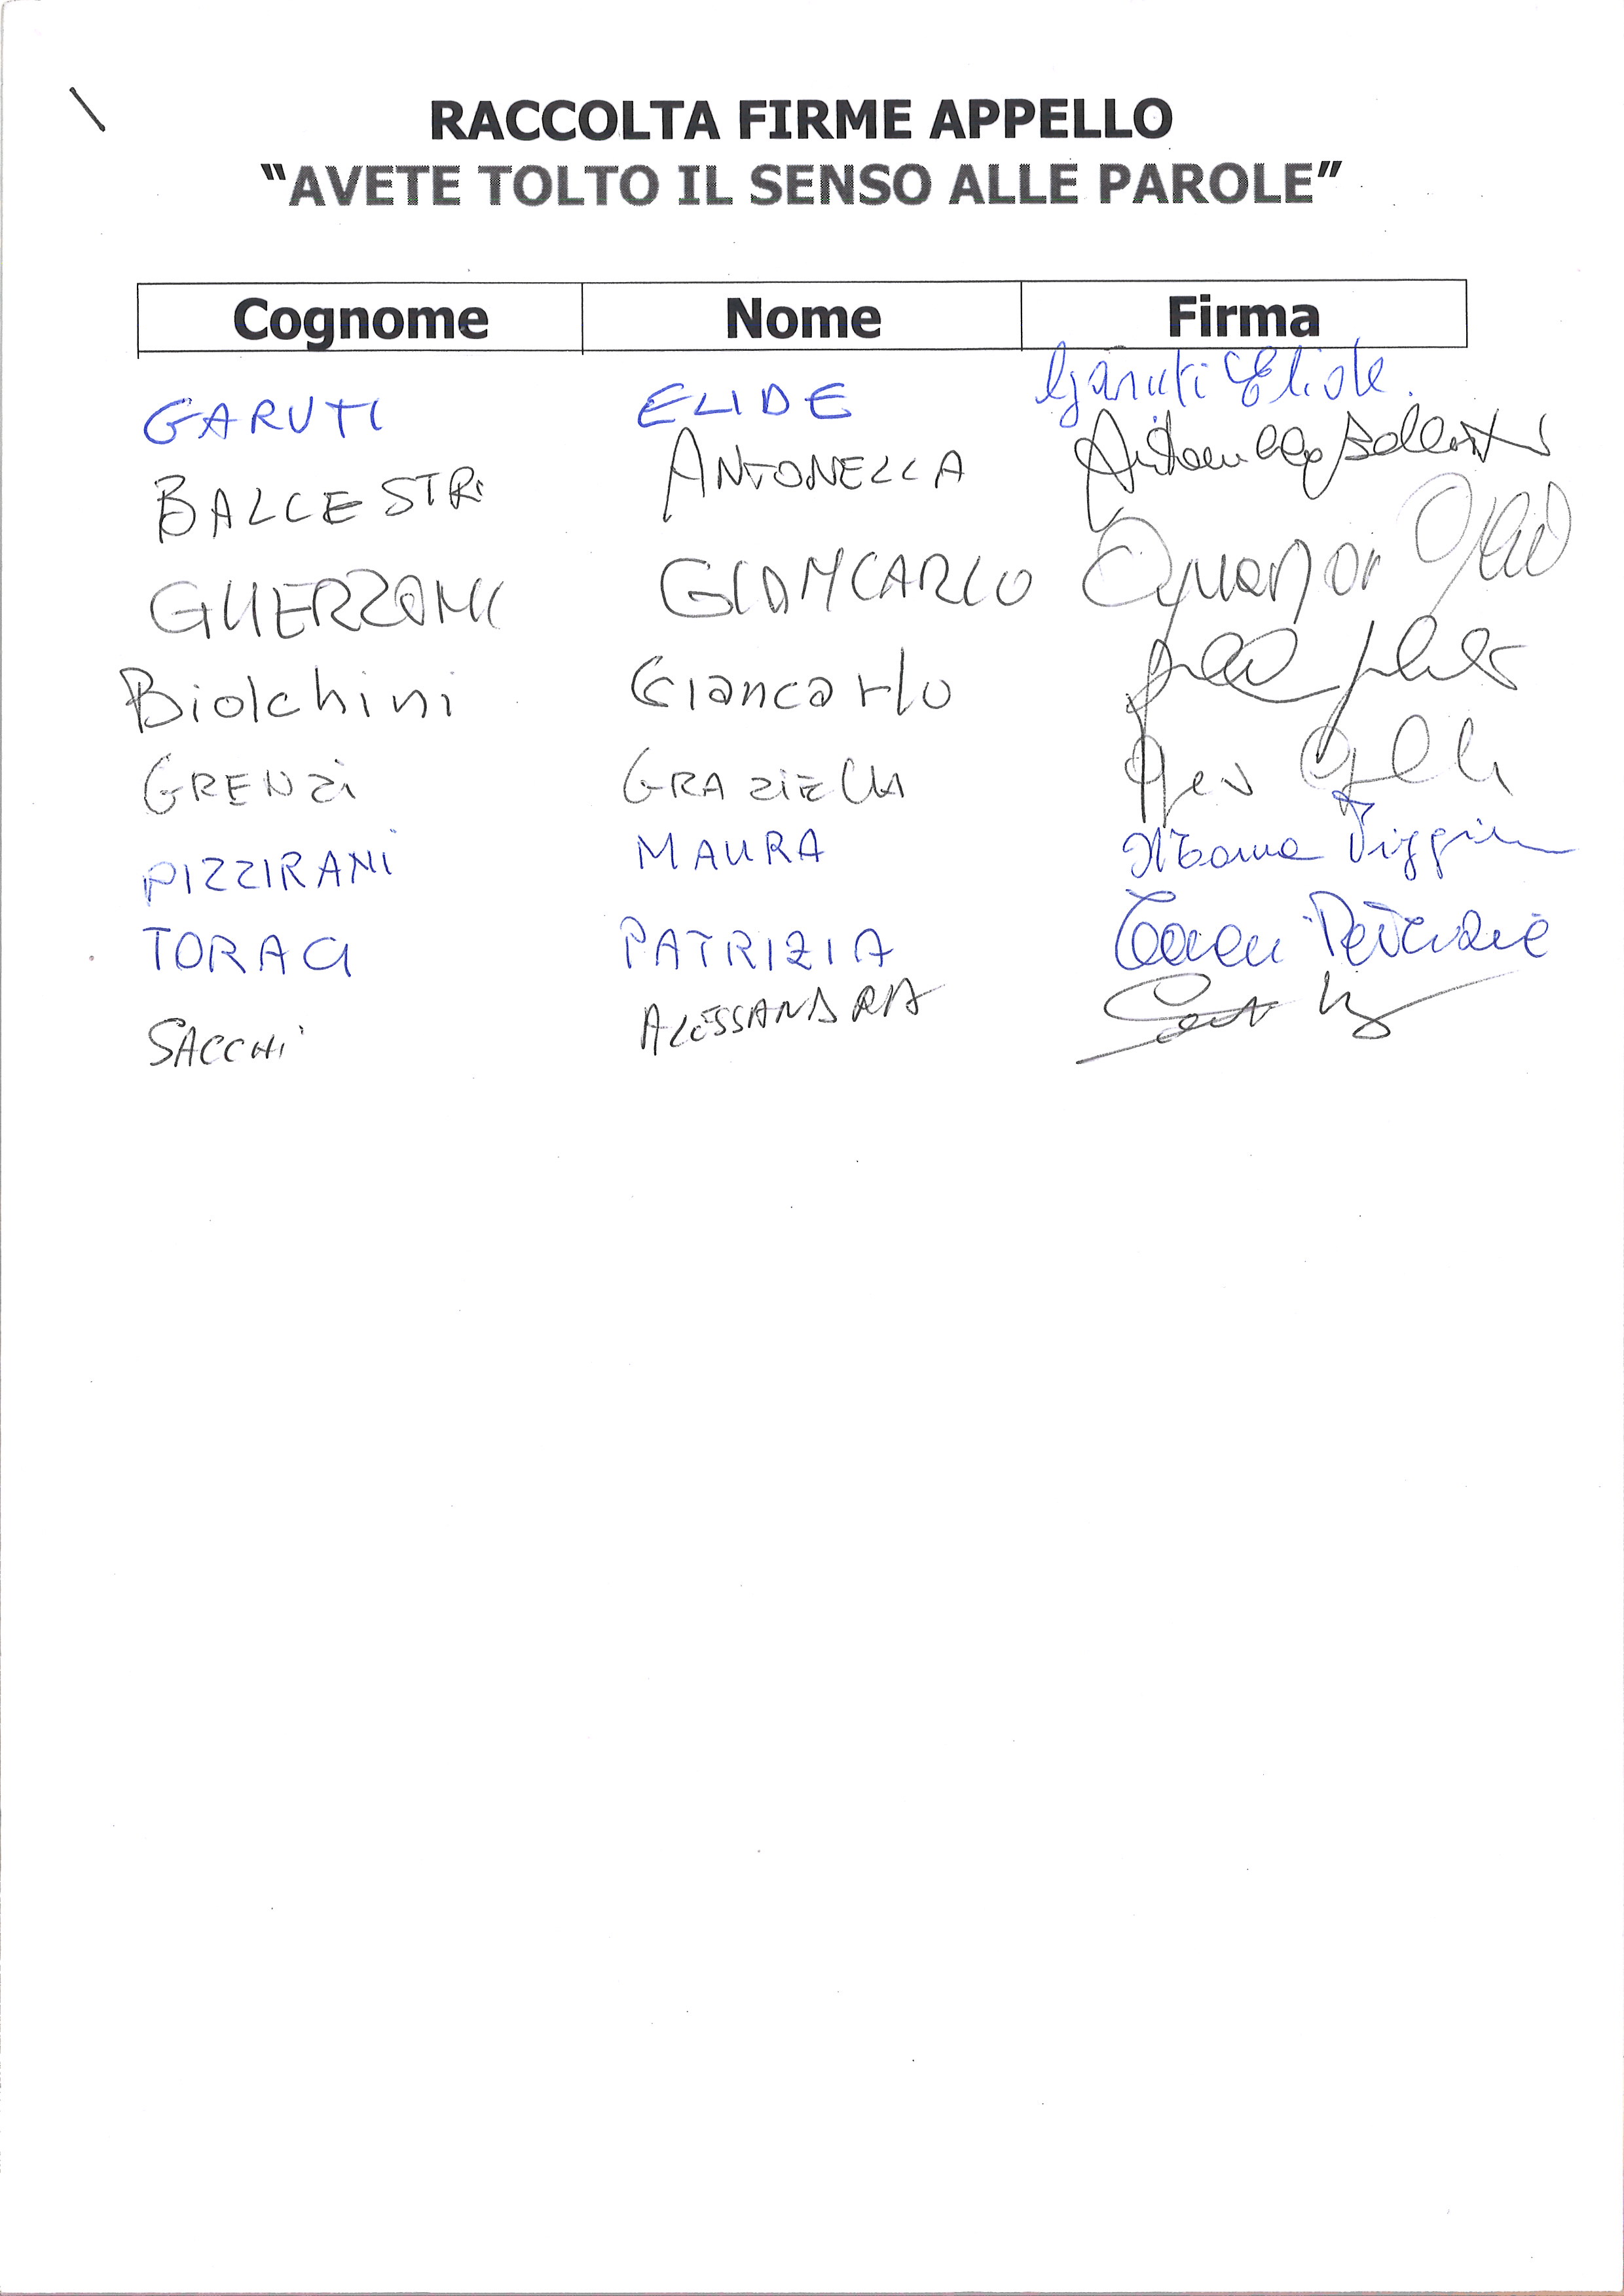 RACCOLTA FIRME APPELLO
“AVETE TOLTO IL SENSO ALLE PAROLE”
Cognome Nome Firma
GARUTI ELIDE Garuti Elide.
BALLESTRI ANTONELLA Antonella Ballestri
GUERZONI GIANCARLO
Biolchini Giancarlo
GRENZi GRAZiElla
PIZZIRANI MAURA Maura
TORACI PATRIZIA Toraci Patrizia
SACCHI ALESSANDRA